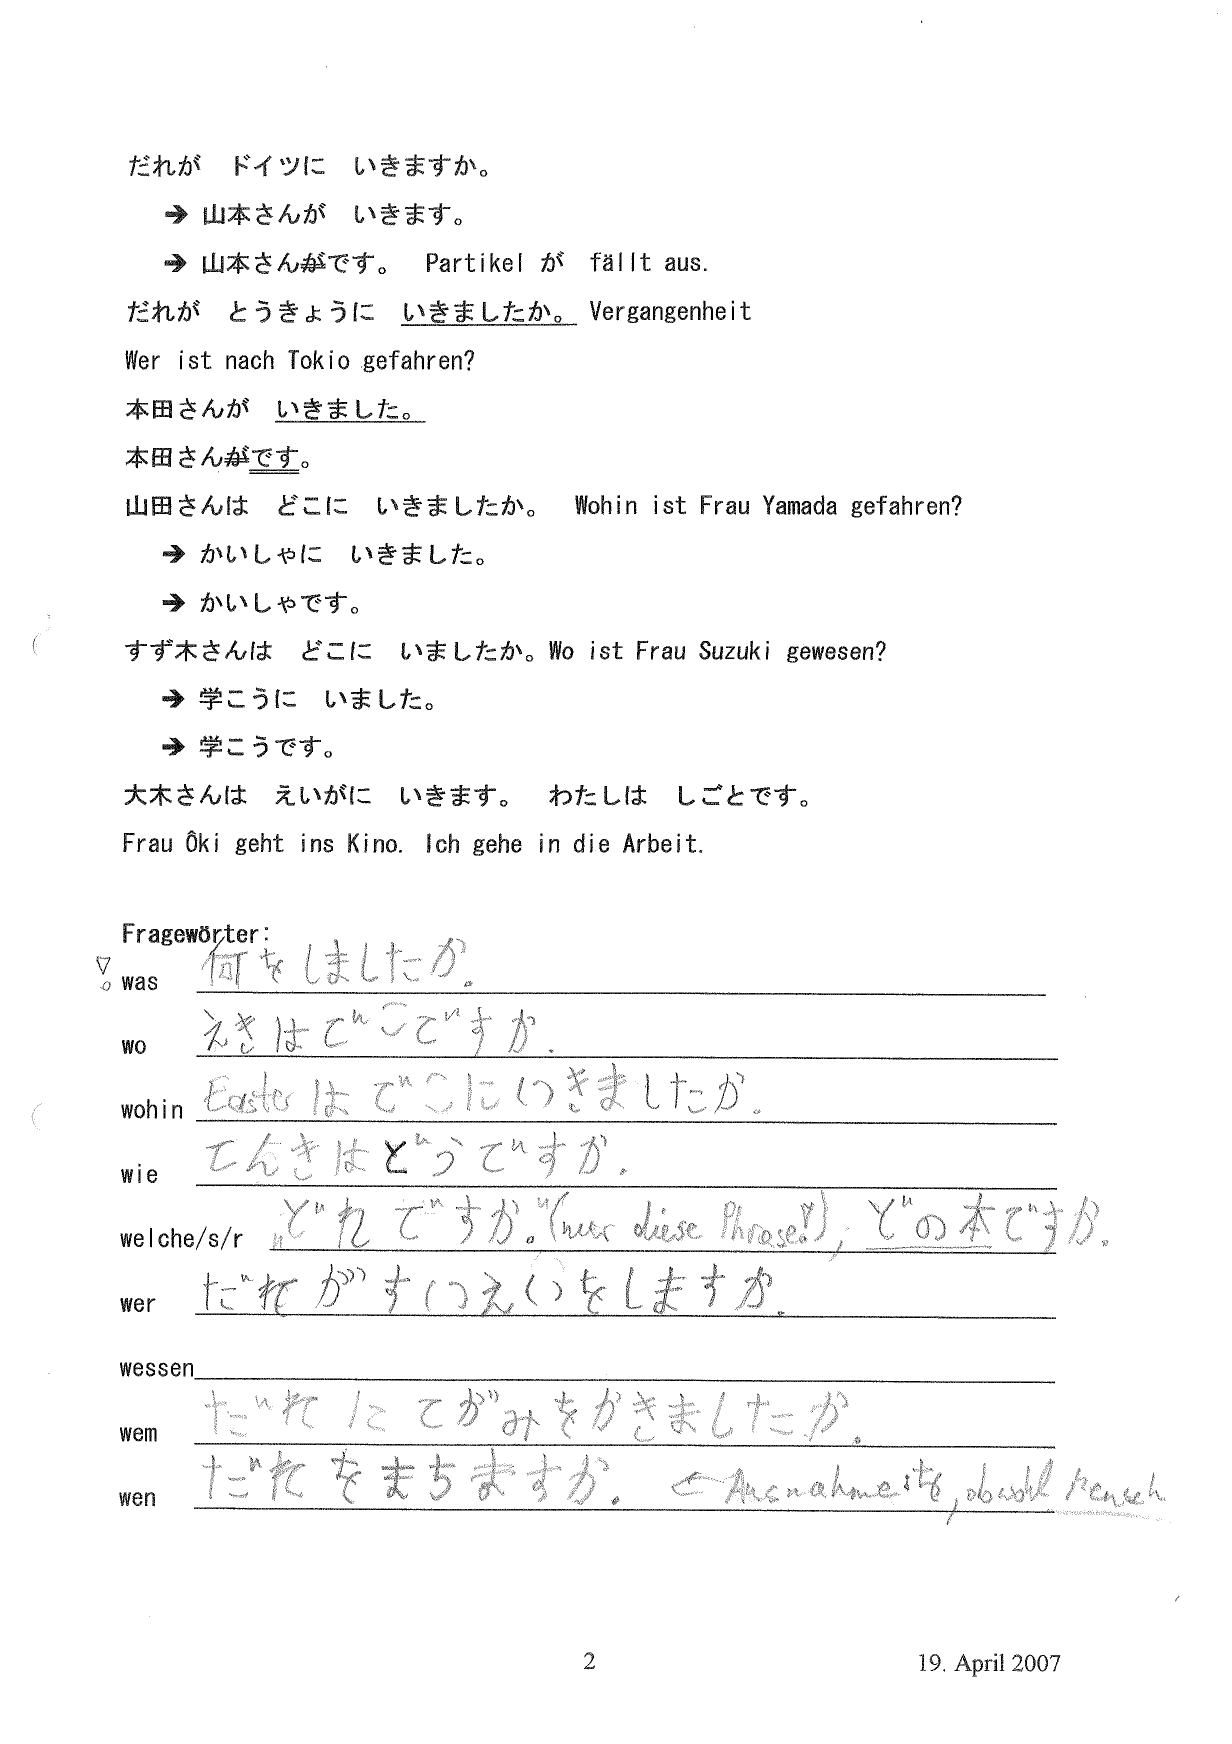 だれが　ドイツに　いきますか。
➔ 山本さんが　いきます。
➔ 山本さんがです。　Partikel が　fällt aus.
だれが　とうきょうに　いきましたか。 Vergangenheit
Wer ist nach Tokio gefahren?
本田さんが　いきました。
本田さんがです。
山田さんは　どこに　いきましたか。　Wohin ist Frau Yamada gefahren?
➔ かいしゃに　いきました。
➔ かいしゃです。
すず木さんは　どこに　いましたか。Wo ist Frau Suzuki gewesen?
➔ 学こうに　いました。
➔ 学こうです。
大木さんは　えいがに　いきます。　わたしは　しごとです。
Frau Ôki geht ins Kino. Ich gehe in die Arbeit.
Fragewörter:
was 何をしましたか。
wo えきはでこですか.
wohin Easter はでこにいきましたか。
wie てんきはどうですか.
welche/s/r „どれですか。“ (nur diese Phrase!), どの本ですか.
wer だれがすいえいをしますか.
wessen
wem だれにてがみをかきましたか.
wen だれをまちますか. ← Ausnahme: を, obwohl Mensch
2
19. April 2007